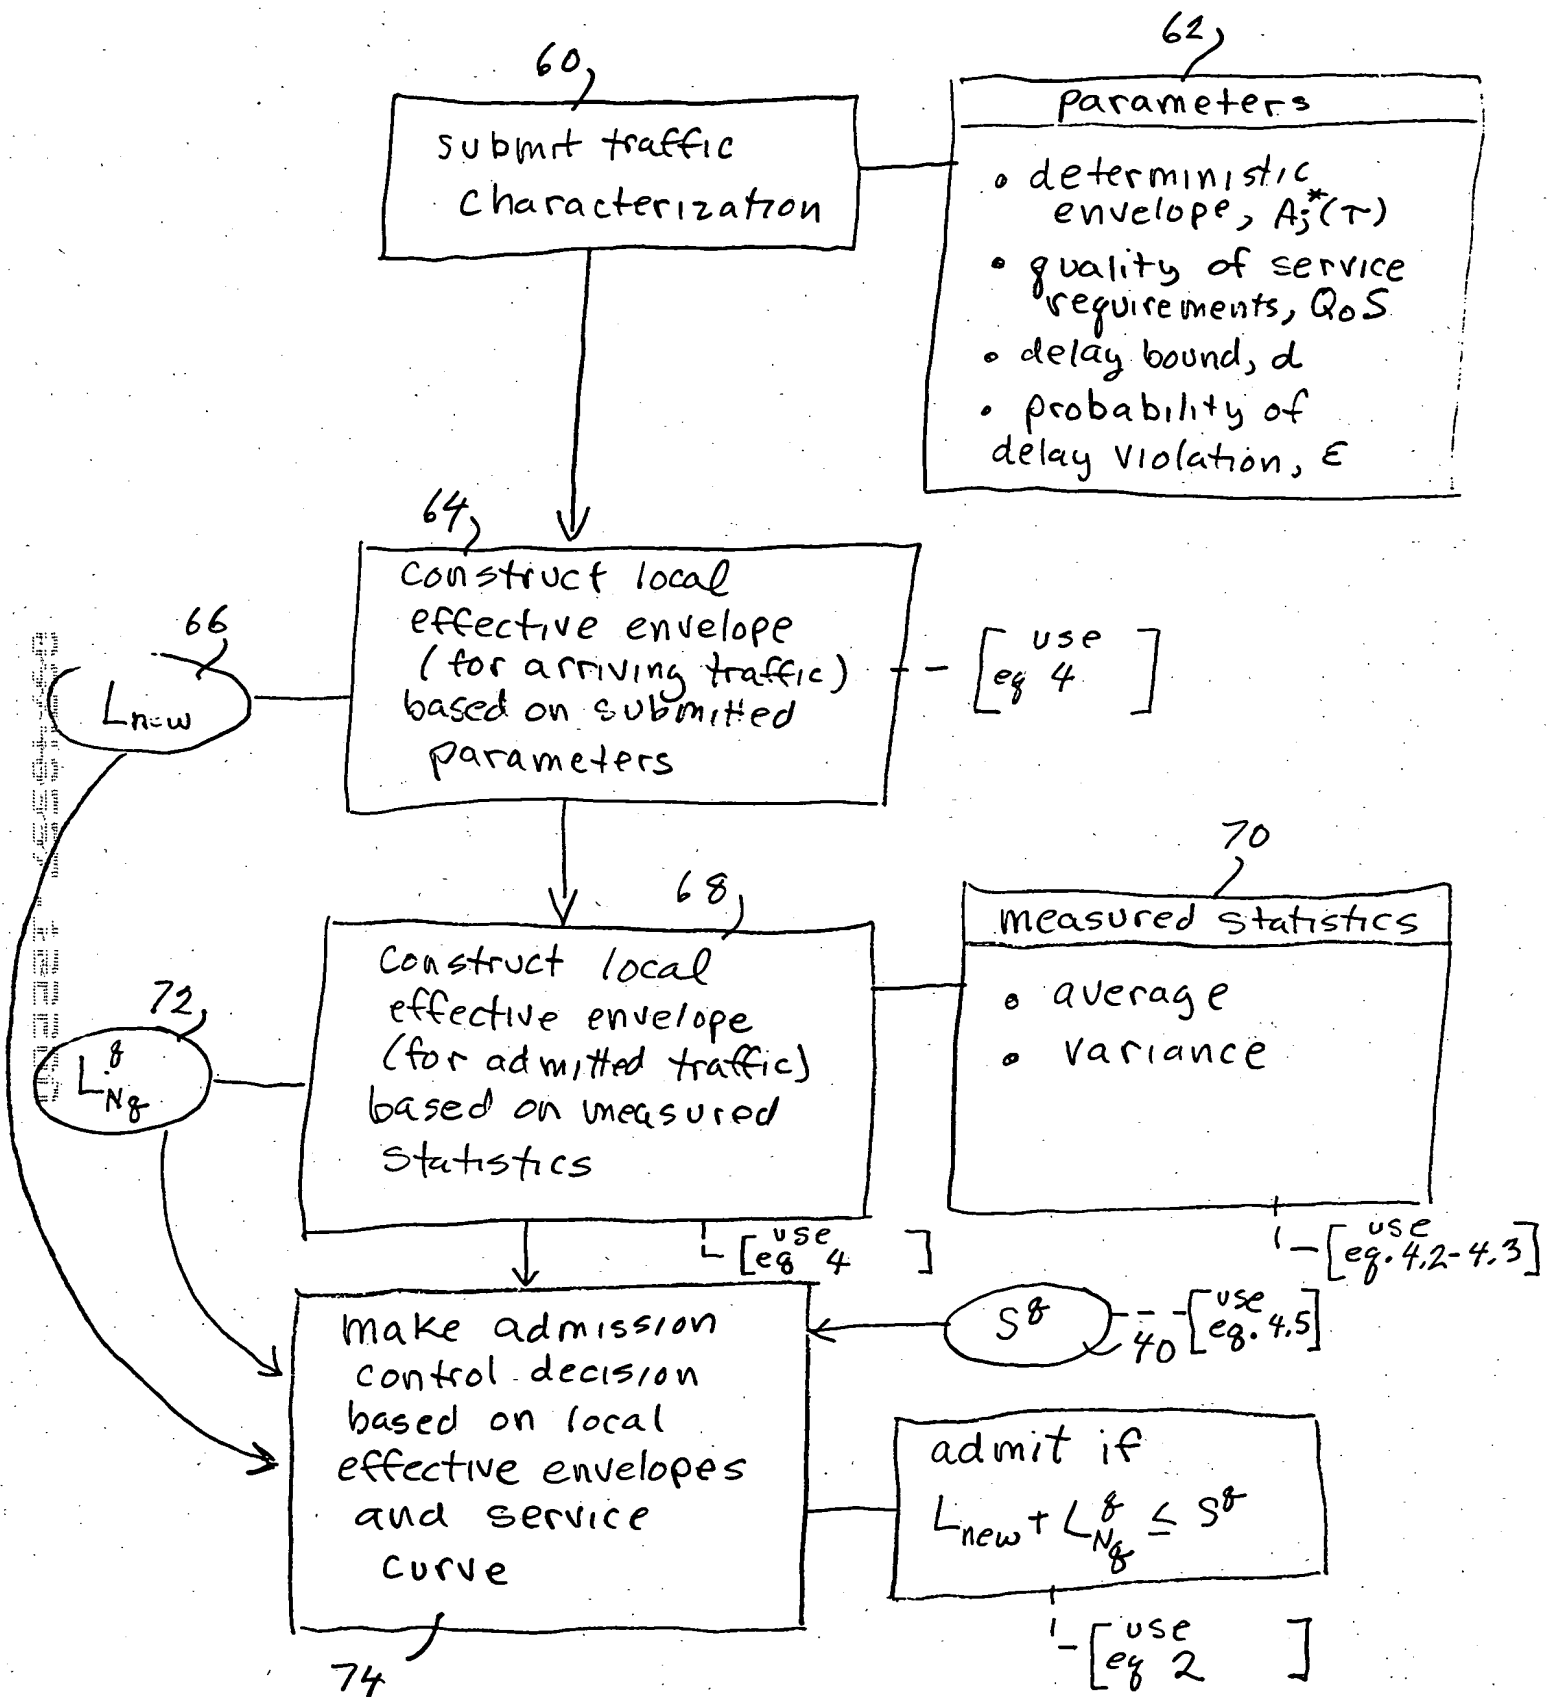 60
submit traffic
characterization
62
parameters
• deterministic
envelope, Aj*(τ)
• quality of service
requirements, QoS
• delay bound, d
• probability of
delay violation, ε
64
construct local
effective envelope
(for arriving traffic)
based on submitted
parameters
[use
eq 4]
66
Lnew
68
construct local
effective envelope
(for admitted traffic)
based on measured
statistics
[use
eq 4]
70
measured statistics
• average
• variance
[use
eq. 4.2-4.3]
72
L^q_Nq
make admission
control decision
based on local
effective envelopes
and service
curve
74
S^q
40
[use
eq. 4.5]
admit if
Lnew + L^q_Nq ≤ S^q
[use
eq 2]